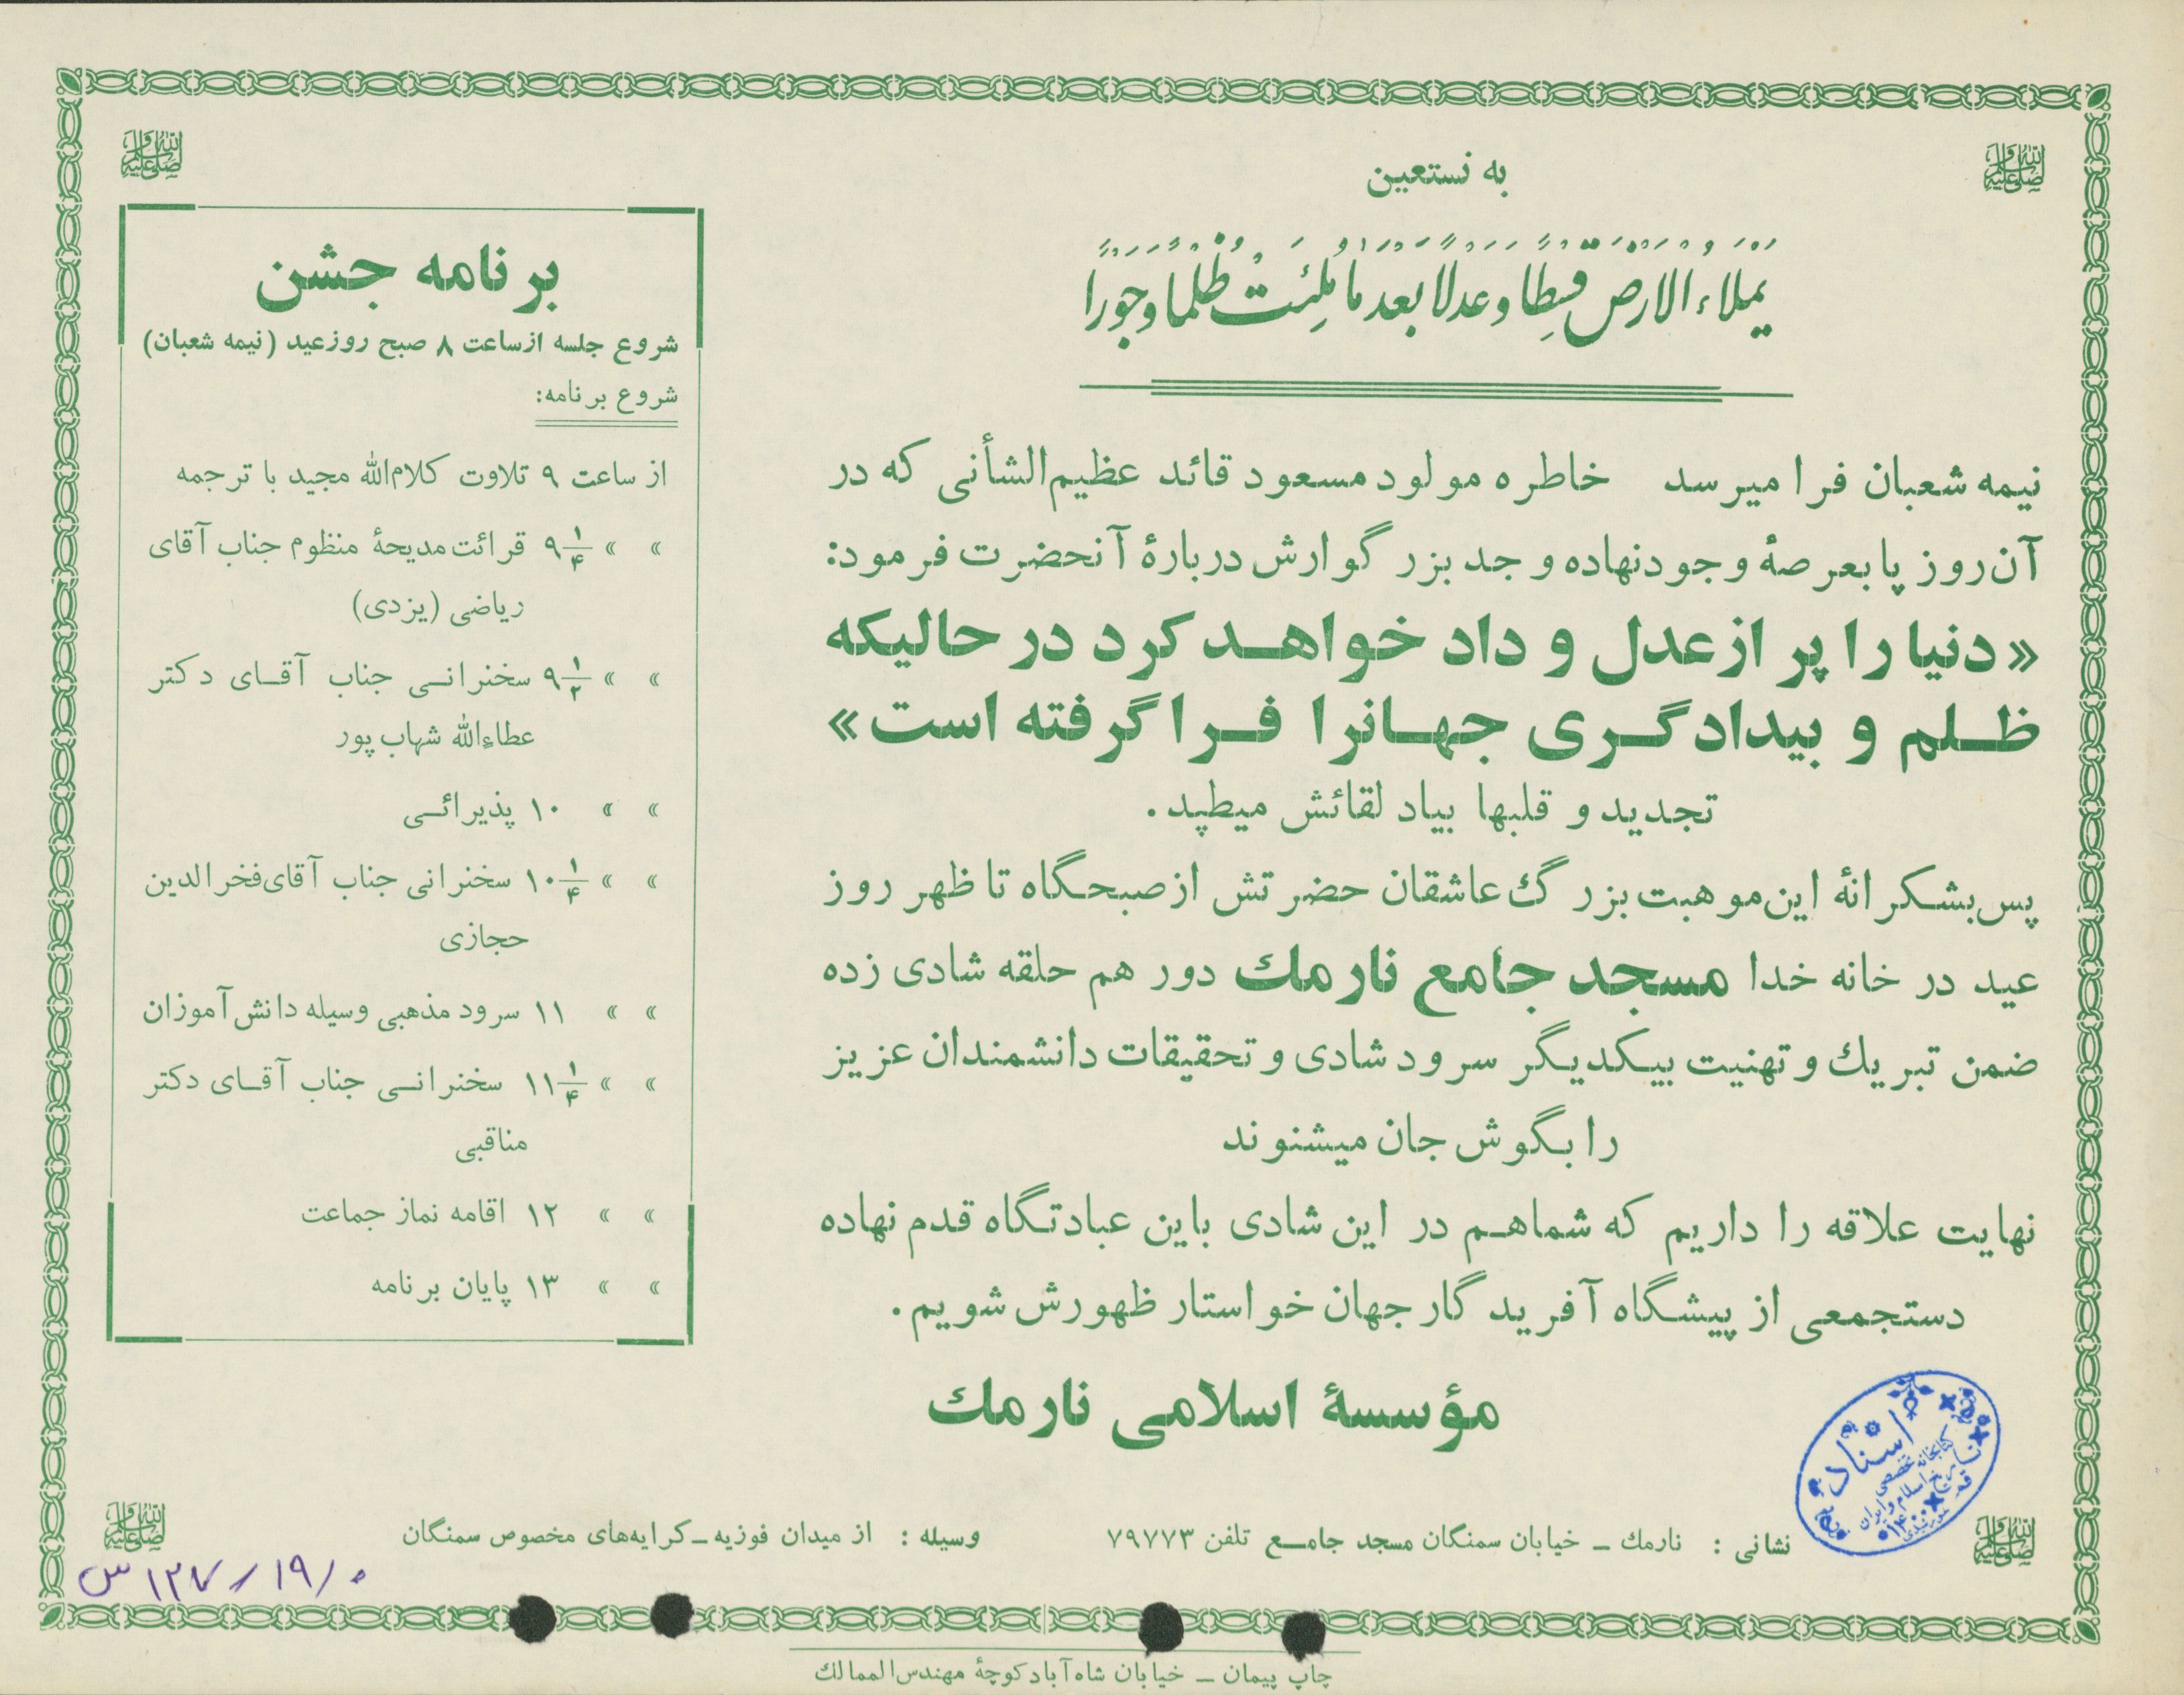 به نستعین
یَملَاءُ الاَرضَ قِسطاً وَ عَدلاً بَعدَ مَا مُلِئَت ظُلماً وَ جَوراً
نیمه شعبان فرا میرسد خاطره مولود مسعود قائد عظیم‌الشأنی که در
آن‌روز پا بعرصهٔ وجود نهاده و جد بزرگوارش دربارهٔ آنحضرت فرمود:
«دنیا را پر از عدل و داد خواهد کرد در حالیکه
ظلم و بیدادگری جهانرا فرا گرفته است»
تجدید و قلبها بیاد لقائش میطپد.
پس بشکرانهٔ این موهبت بزرگ عاشقان حضرتش از صبحگاه تا ظهر روز
عید در خانه خدا مسجد جامع نارمك دور هم حلقه شادی زده
ضمن تبریك و تهنیت بیکدیگر سرود شادی و تحقیقات دانشمندان عزیز
را بگوش جان میشنوند
نهایت علاقه را داریم که شما هم در این شادی باین عبادتگاه قدم نهاده
دستجمعی از پیشگاه آفریدگار جهان خواستار ظهورش شویم.
مؤسسهٔ اسلامی نارمك
نشانی : نارمك ــ خیابان سمنگان مسجد جامع تلفن ۷۹۷۷۳
وسیله : از میدان فوزیه ــ کرایه‌های مخصوص سمنگان
برنامه جشن
شروع جلسه از ساعت ۸ صبح روز عید (نیمه شعبان)
شروع برنامه:
از ساعت ۹ تلاوت کلام‌الله مجید با ترجمه
» » ۹ ۱/۴ قرائت مدیحهٔ منظوم جناب آقای
ریاضی (یزدی)
» » ۹ ۱/۲ سخنرانی جناب آقای دکتر
عطاءالله شهاب پور
» » ۱۰ پذیرائی
» » ۱۰ ۱/۴ سخنرانی جناب آقای فخرالدین
حجازی
» » ۱۱ سرود مذهبی وسیله دانش‌آموزان
» » ۱۱ ۱/۴ سخنرانی جناب آقای دکتر
مناقبی
» » ۱۲ اقامه نماز جماعت
» » ۱۳ پایان برنامه
چاپ پیمان ــ خیابان شاه‌آباد کوچهٔ مهندس‌الممالك
اسناد
کتابخانه تخصصی
تاریخ اسلام و ایران
قم
صلی الله علیه و آله
صلی الله علیه و آله
صلی الله علیه و آله
صلی الله علیه و آله